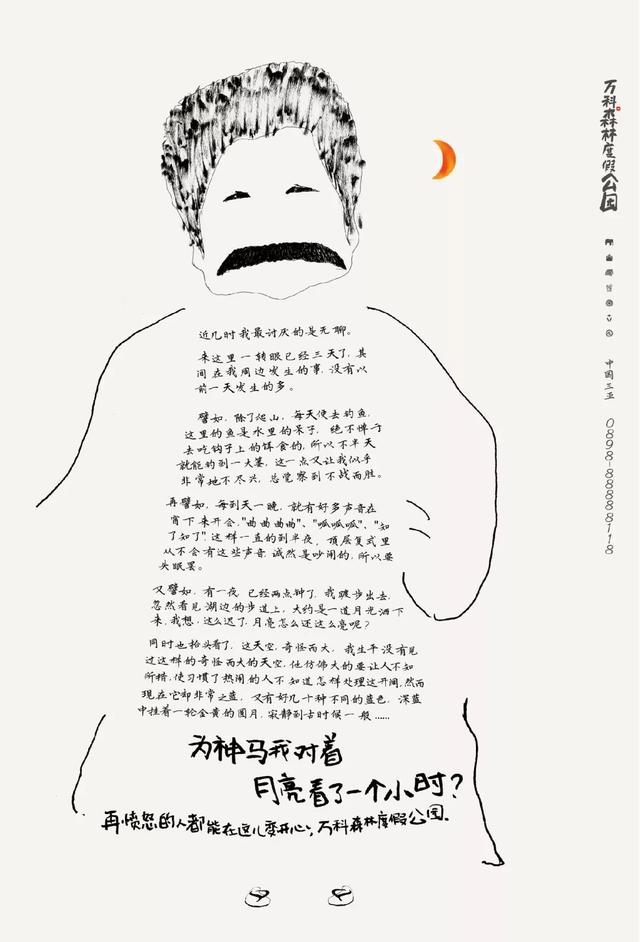 近几时我最讨厌的是无聊。
来这里一转眼已经三天了，其
间在我周边发生的事，没有以
前一天发生的多。
譬如，除了爬山，每天便去钓鱼，
这里的鱼是水里的呆子，绝不惮于
去吃钩子上的饵食的，所以不半天
就能钓到一大篓，这一点又让我似乎
非常地不尽兴，总觉察到不战而胜。
再譬如，每到天一晚，就有好多声音在
窗下来开会，"曲曲曲曲"、"呱呱呱"、"知
了知了"，这样一直的到半夜，顶层复式里
从不会有这些声音，诚然是吵闹的，所以要
头眠罢。
又譬如，有一夜，已经两点钟了，我踱步出去，
忽然看见湖边的步道上，大约是一道月光洒下
来，我想，这么迟了，月亮怎么还这么亮呢？
同时也抬头看了，这天空，奇怪而大，我生平没有见
过这样的奇怪而大的天空，他仿佛大的要让人不知
所措，使习惯了热闹的人不知道怎样处理这开阔，然而
现在它却非常之蓝，又有好几十种不同的蓝色，深蓝
中挂着一轮金黄的圆月，寂静到古时候一般……
为神马我对着
月亮看了一个小时？
再愤怒的人都能在这儿变开心，万科森林度假公园。
万科森林度假公园
中国三亚 0898-88888118